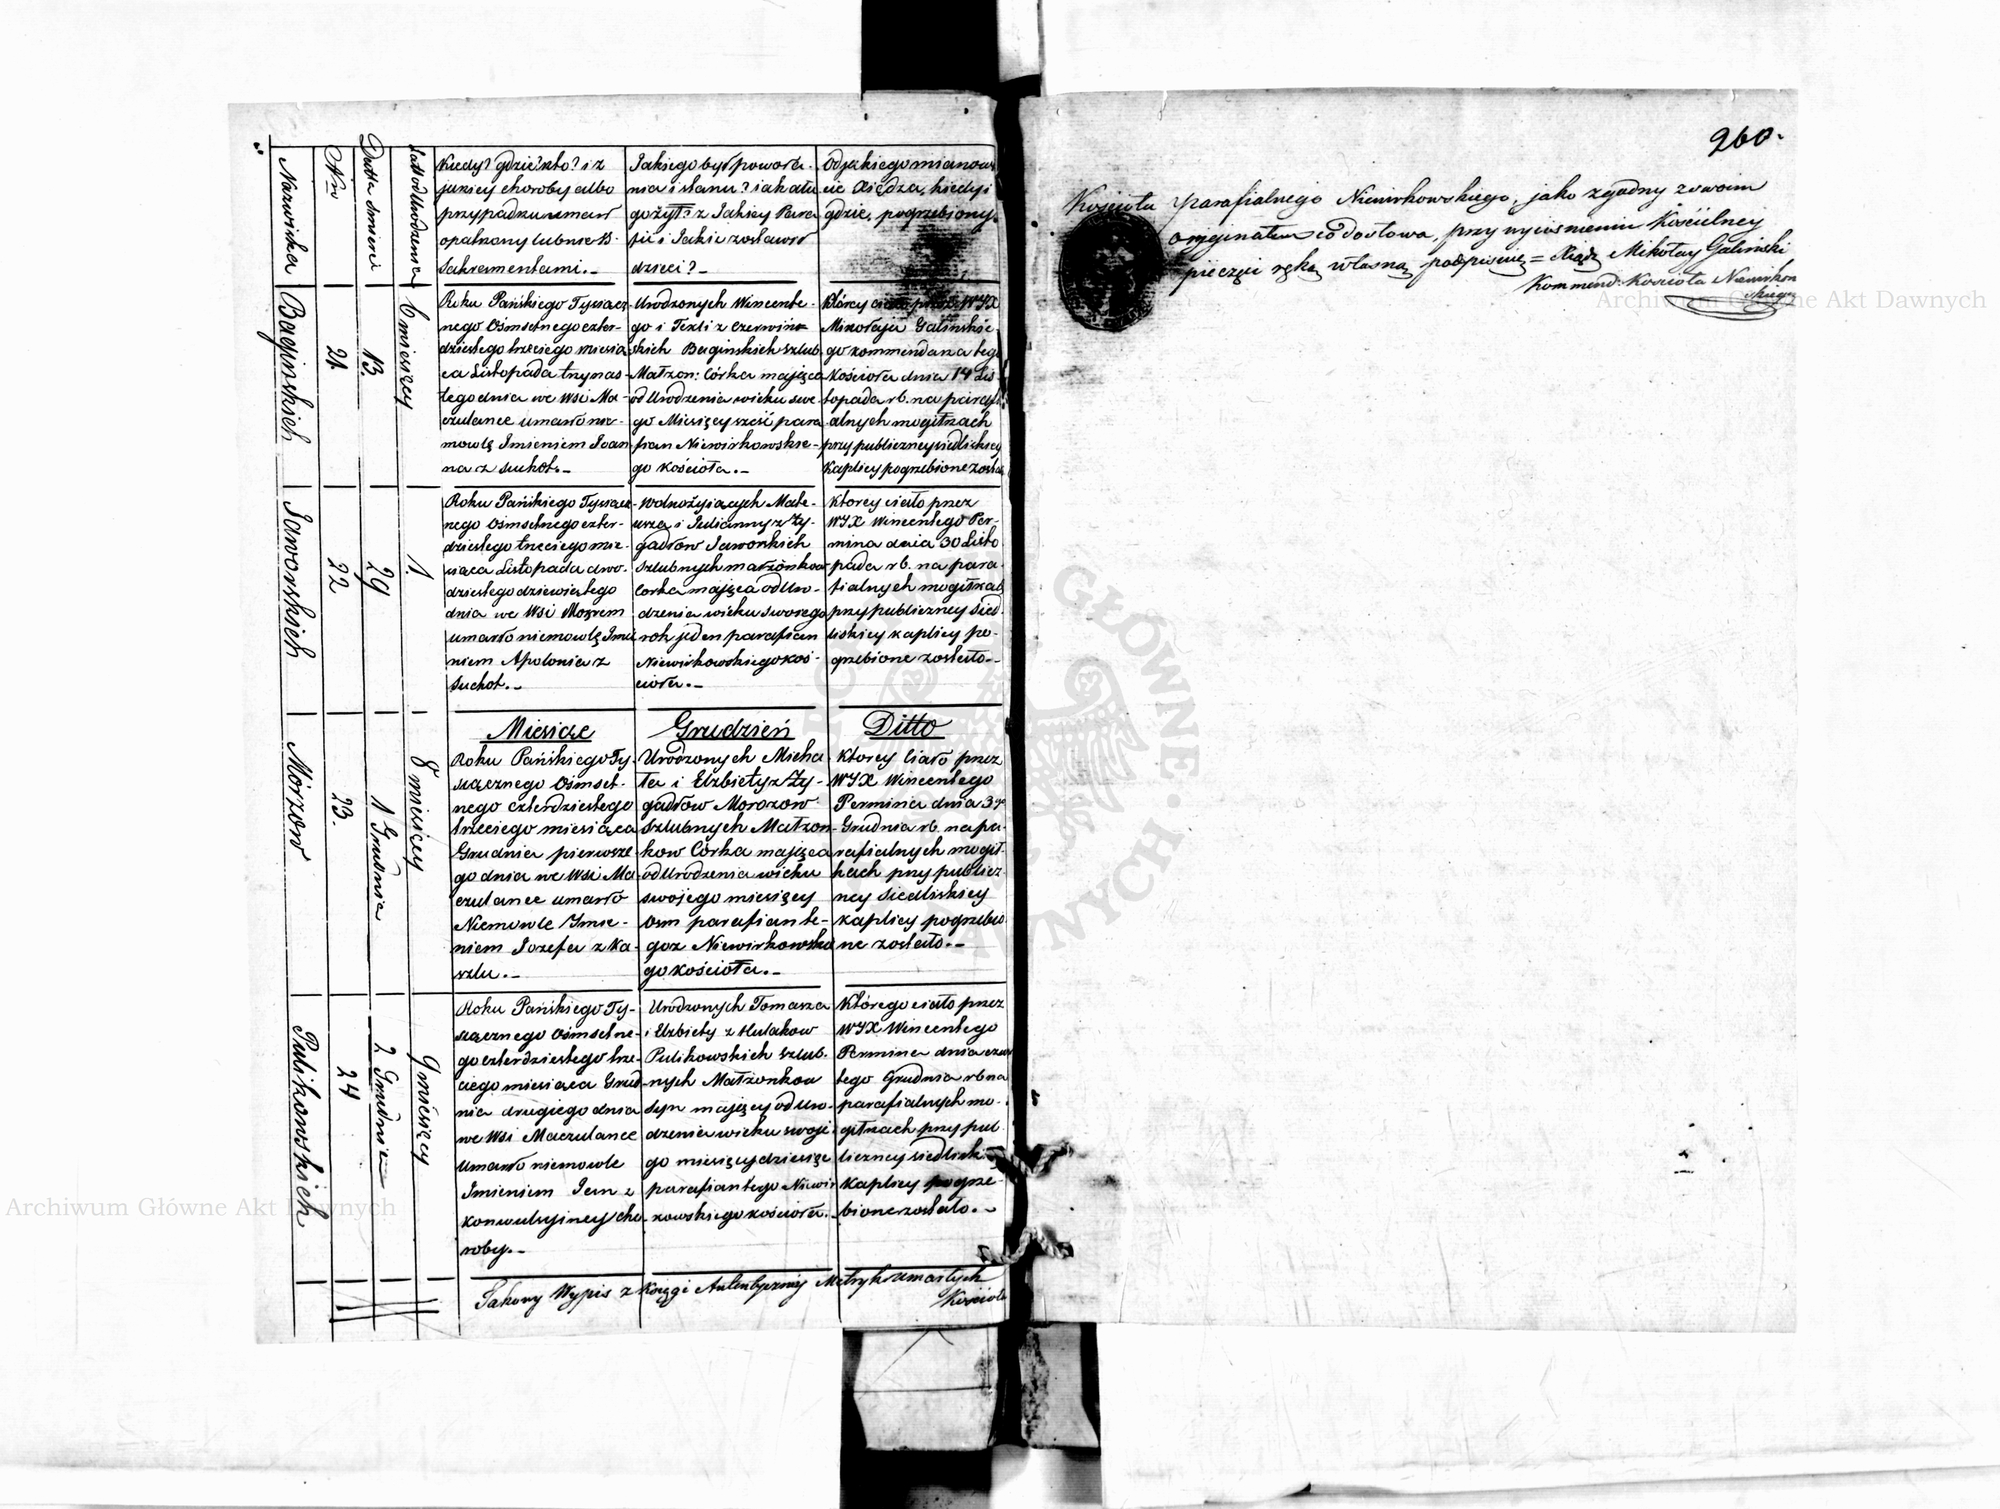 Nazwiska
Nro
Datta Śmierci
Lat od Urodzenia
Kiedy? gdzie? kto? i z
jakiey choroby albo
przypadku umarł
opatrzony lub nie Ś.
Sakramentami. –
Jakiego był powoła-
nia i stanu? iak dłu
go żył? z Jakiey Para
fii i Jakie zostawił
dzieci? –
Od jakiego mianowi
cie Xiędza, kiedy i
gdzie, pogrzebiony.
Barginskich
21
13.
6 miesięcy
Roku Pańskiego Tysiącz
nego Ośmsetnego czter-
dziestego trzeciego miesią
ca Listopada trzynas-
tego dnia we Wsi Ma-
czulance umarło nie-
mowlę Imieniem Joan
na z suchot. –
Urodzonych Wincente-
go i Tekli z Czerwińs-
skich Barginskich szlub.
Małżon: Córka mająca
od Urodzenia wieku swe-
go Miesięcy sześć para
fian Niewirkowskie-
go kościoła. –
Którey ciało przez WJX
Mikołaja Galińskie-
go kommendarza tego
Kościoła dnia 14 Lis-
topada rb. na parafi
alnych mogiłkach
przy publiczney siedliskiey
kaplicy pogrzebione zosta
Jaworskich
22
29
1.
Roku Pańskiego Tysiącz-
nego Ośmsetnego czter-
dziestego trzeciego mie-
siąca Listopada dwu-
dziestego dziewiątego
dnia we Wsi
umarło niemowlę Imie
niem Apolonia z
suchot. –
Wolnożyiących Mate-
usza i Julianny z Zy-
gadłów Jaworskich
szlubnych małżonków
Corka mająca od Uro-
dzenia wieku swoiego
rok jeden parafian
Niewirkowskiego koś-
cioła. –
Ktorey ciało przez
WJX Wincentego Per-
mina dnia 30 Listo
pada rb. na para
fialnych mogiłkach
przy publiczney Sied-
liskiey kaplicy po-
grzebione zostało. –
Miesiąc
Grudzień
Ditto
Morzow
23.
1 Grudnia
8 miesięcy
Roku Pańskiego Ty-
siącznego Ośmset-
nego czterdziestego
trzeciego miesiąca
Grudnia pierwsze
go dnia we Wsi Ma
czulance umarło
Niemowle Imie-
niem Jozefa z ka-
szlu. –
Urodzonych Micha
ła i Elżbiety z Zy-
gadłów Morozow
szlubnych Małżon-
kow Córka mająca
od Urodzenia wieku
swojego miesięcy
osm parafian te-
goz Niewirkowskie
go kościoła. –
Ktorey Ciało przez
WJX Wincentego
Permina dnia 3go
Grudnia rb. na pa-
rafialnych mogił-
kach przy publicz-
ney Siedliskiey
kaplicy pogrzebio
ne zostało. –
Pulikowskich
24
2 Grudnia
9 miesięcy
Roku Pańskiego Ty-
siącznego Ośmsetne-
go czterdziestego trze-
ciego miesiąca Grud-
nia drugiego dnia
we Wsi Maczulance
Umarło niemowle
Imieniem Jan z
konwulsyiney cho-
roby. –
Urodzonych Tomasza
i Elzbiety z Hulakow
Pulikowskich szlub-
nych Małżonkow
Syn mający od Uro-
dzenia wieku swoje
go miesięcy dziesięc
parafian tego Niewir
kowskiego kościoła. –
Którego ciało przez
WJX Wincentego
Permina dnia czwar
tego Grudnia rb na
parafialnych mo-
giłkach przy pub-
liczney siedlisk
kaplicy pogrze-
bione zostało. –
Takowy Wypis z Księgi Autentyczney Metryk umarłych
Kościoła
260.
Kościoła parafialnego Niewirkowskiego, jako zgodny z swoim
oryginałem co do słowa, przy wyciśnieniu Kościelney
pieczęci ręką własną podpisuię = Xiądz Mikołay Galiński
Kommend. Kościoła Niewirkow
skiego
Archiwum Główne Akt Dawnych
Archiwum Główne Akt Dawnych